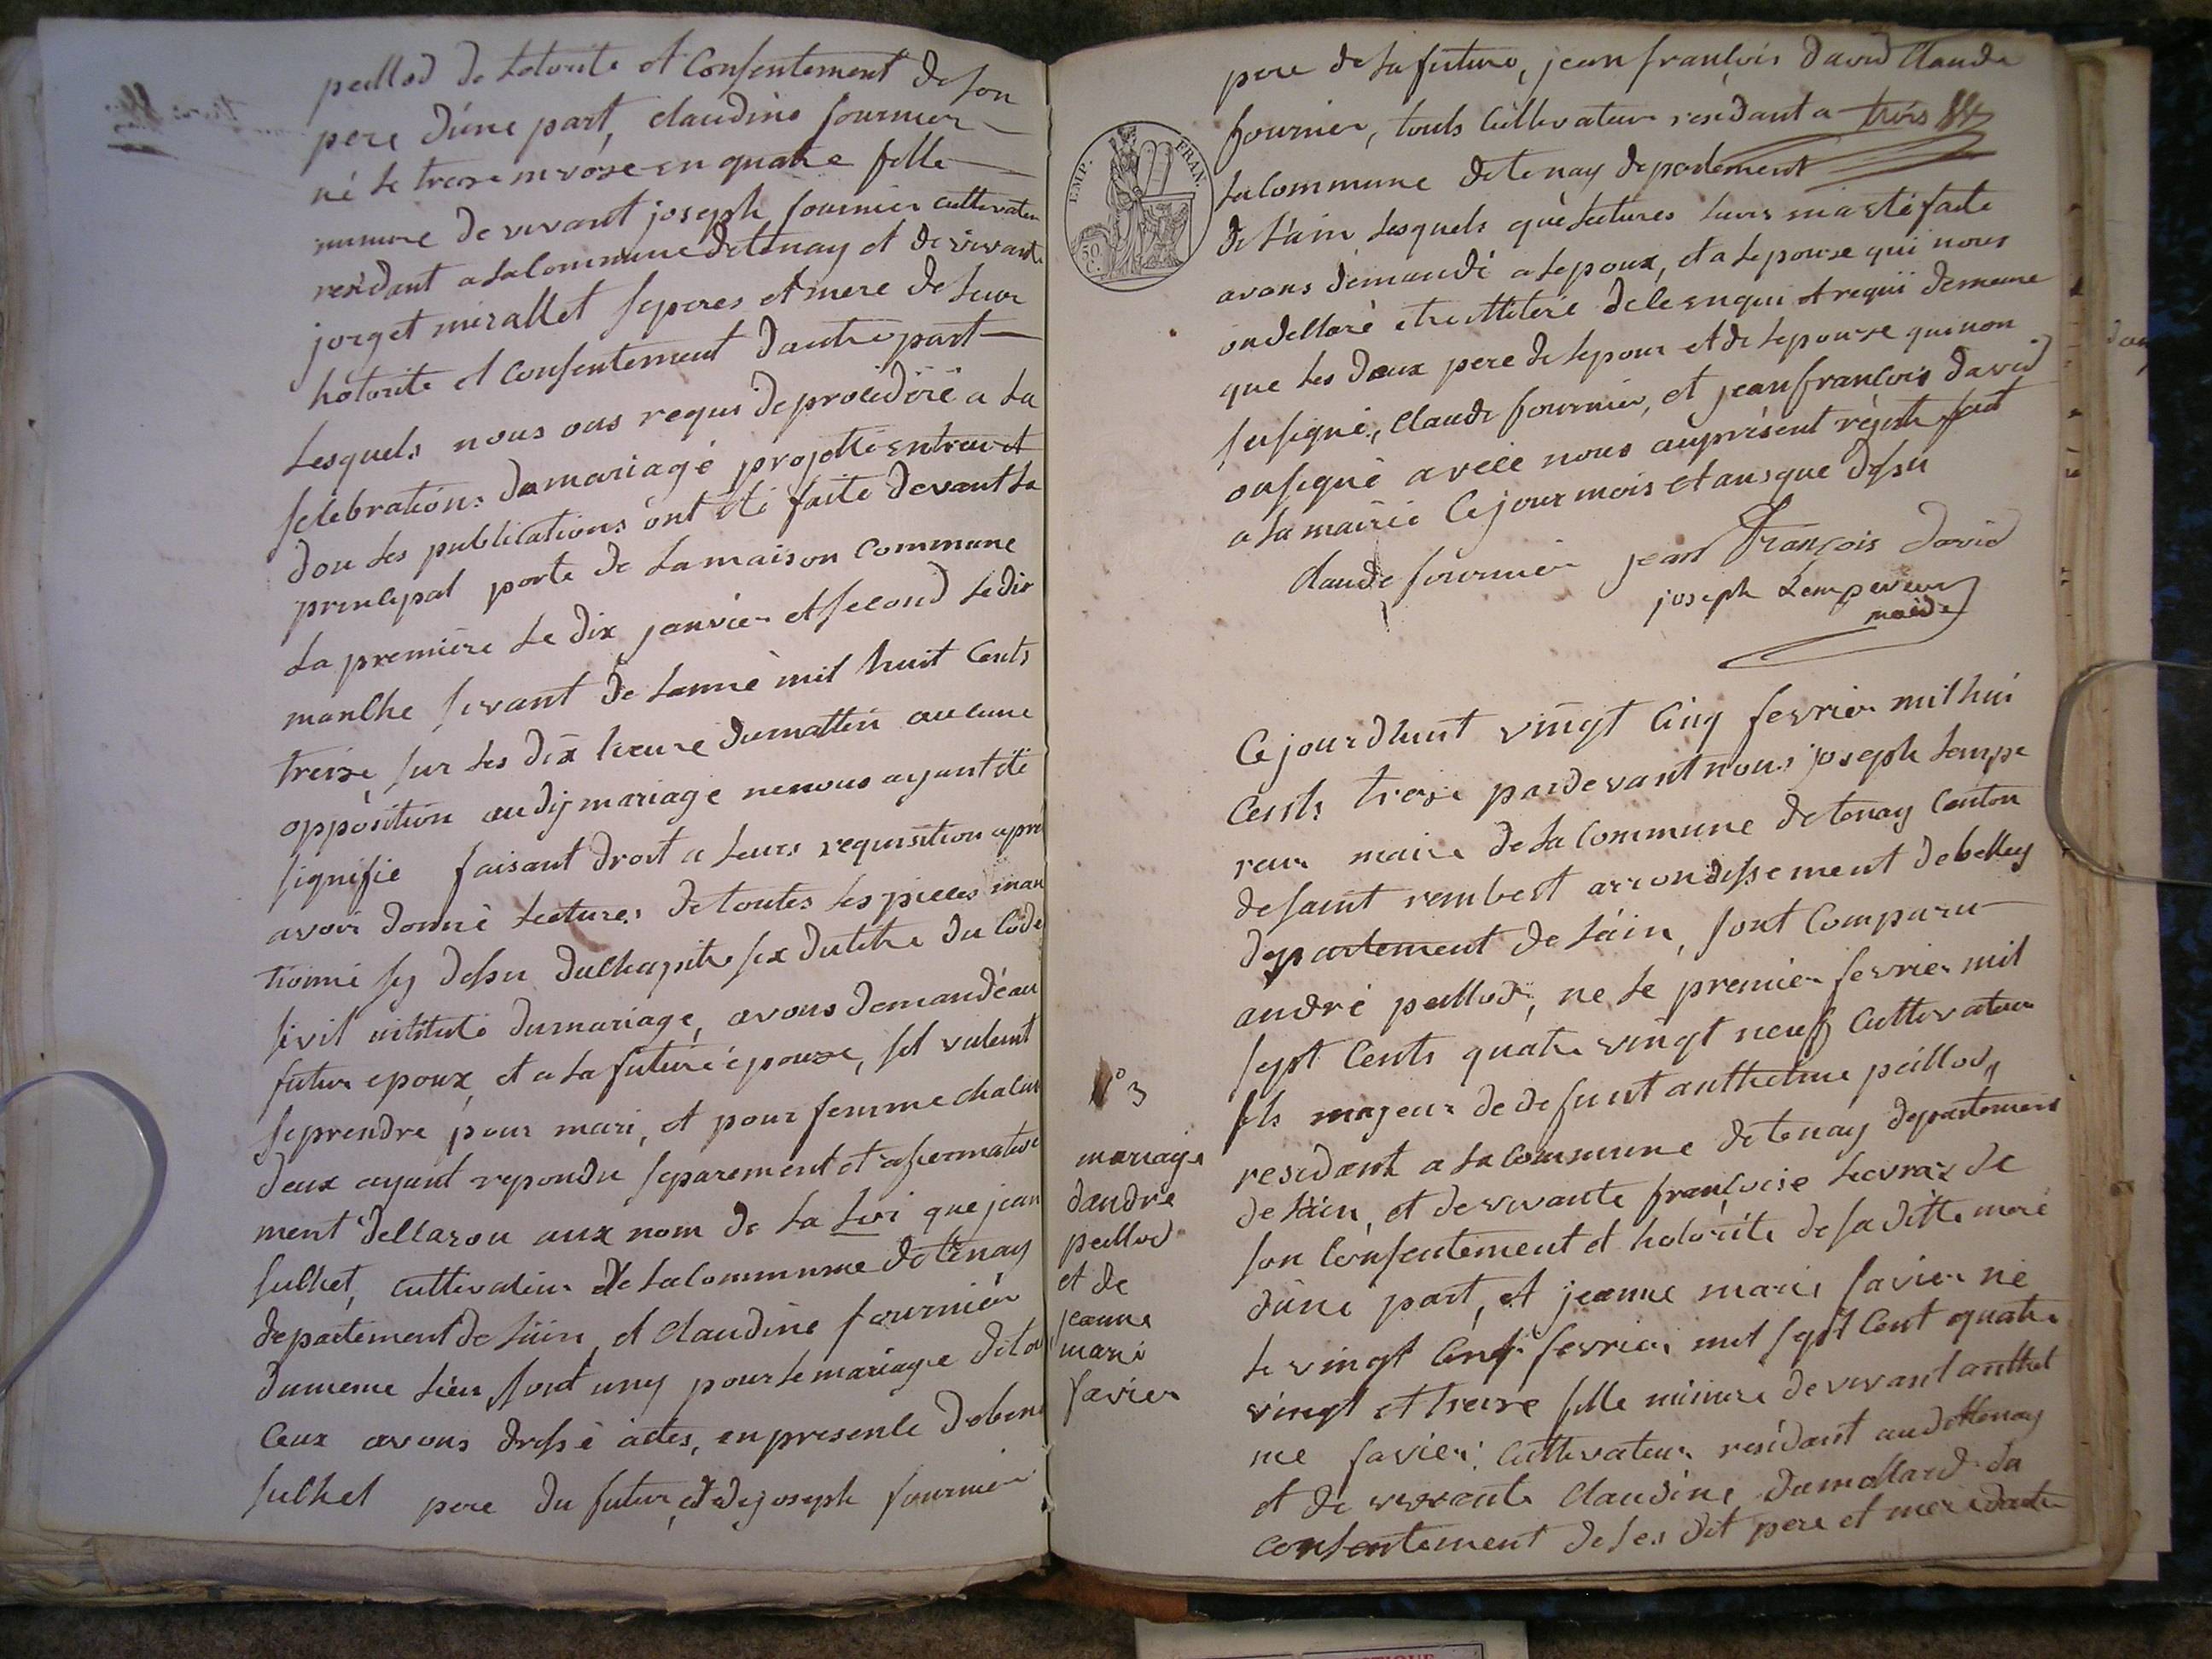 peillod de Lotorite et Consentement de son
pere d'une part, claudine fournier
né le treze nivôse en quatre fille
mineure de vivant joseph fournier cultivateur
residant a la Commune de tenay et de vivant
jorget mirallet ses peres et mere de leur
hotorite et Consentement d'autre part
Lesquels nous ons requis de procédéré a La
selebrations du mariagé projetté entreu et
don Les publications ont été faite devant La
prinsipal porte de La maison Commune
La premiere Le dix janvier et second Le dix
manche sivant de Lanné mil huit Cents
treize, sur Les dix heure du mattin aucune
oppôsition audij mariage ne nous ayant été
signifie faisant droit a Leurs requisition apre
avoir donné Lectures de toutes Les pieces man
tionné sy desu du chapitre six du titre du Code
sivil intitulé du mariage, avons demandé au
futur epoux, et a La future épouze, sil vulent
seprendre pour mari, et pour femme chalun
deux ayant repondu separement et afermative
ment dellarou aux nom de La Loi que jean
sulhet, cultivateur de La Commune de tenay
departement de Láin, et Claudine fournier
du meme Lieu sont uny pour Le mariage de tou
Ceux avons dréssé actes, en presenle de bene
sulhet pere du futur, et de joseph fournier
pere de La future, jean françois david Claude
fournier, touts Cultivateur residant a trois
EMP. FRAN.
50 C.
La Commune de tenay departement
de Láin Lesquels qué Lectures Leurs ma été faite
avons demandé a Lepoux, et a Lepouse qui nous
on dellaré
que Les deux pere de Lepoux et de Lepouse qui non
su signé, Claude fournier, et jean françois david
on signé avéce nous au présent régistre fait
a La mairie Ce jour mois et an que desu
claude fournier jean François david
joseph Lempereur
maide
Ce jourdhuit vingt Cinq fevrier mil hui
Cents treze pardevant nous joseph Lempe
reur maire de La Commune de tenay Canton
de saint rembert arrondissement de belley
departement de Láin, sont Comparu
andré peillod, ne Le premier fevrier mil
sept Cents quatre vingt neuf Cultivateur
fils majeur de defunt anthelme peillod,
residant a La Commune de tenay departement
de Láin, et de vivante françoise Lecvraz de
son Consentement et hotorite de sa ditte meré
d'une part, et jeanne marie savier né
Le vingt Cinq fevrier mil sept Cent quatre
vingt et treize fille mineure de vivant anthel
me savier Cultivateur residant audittenay
et de vivante Claudine dumollard du
Consentement de ses dit pere et mere dautre
N° 3
mariage
dandré
peillod
et de
jeanne
marie
savier